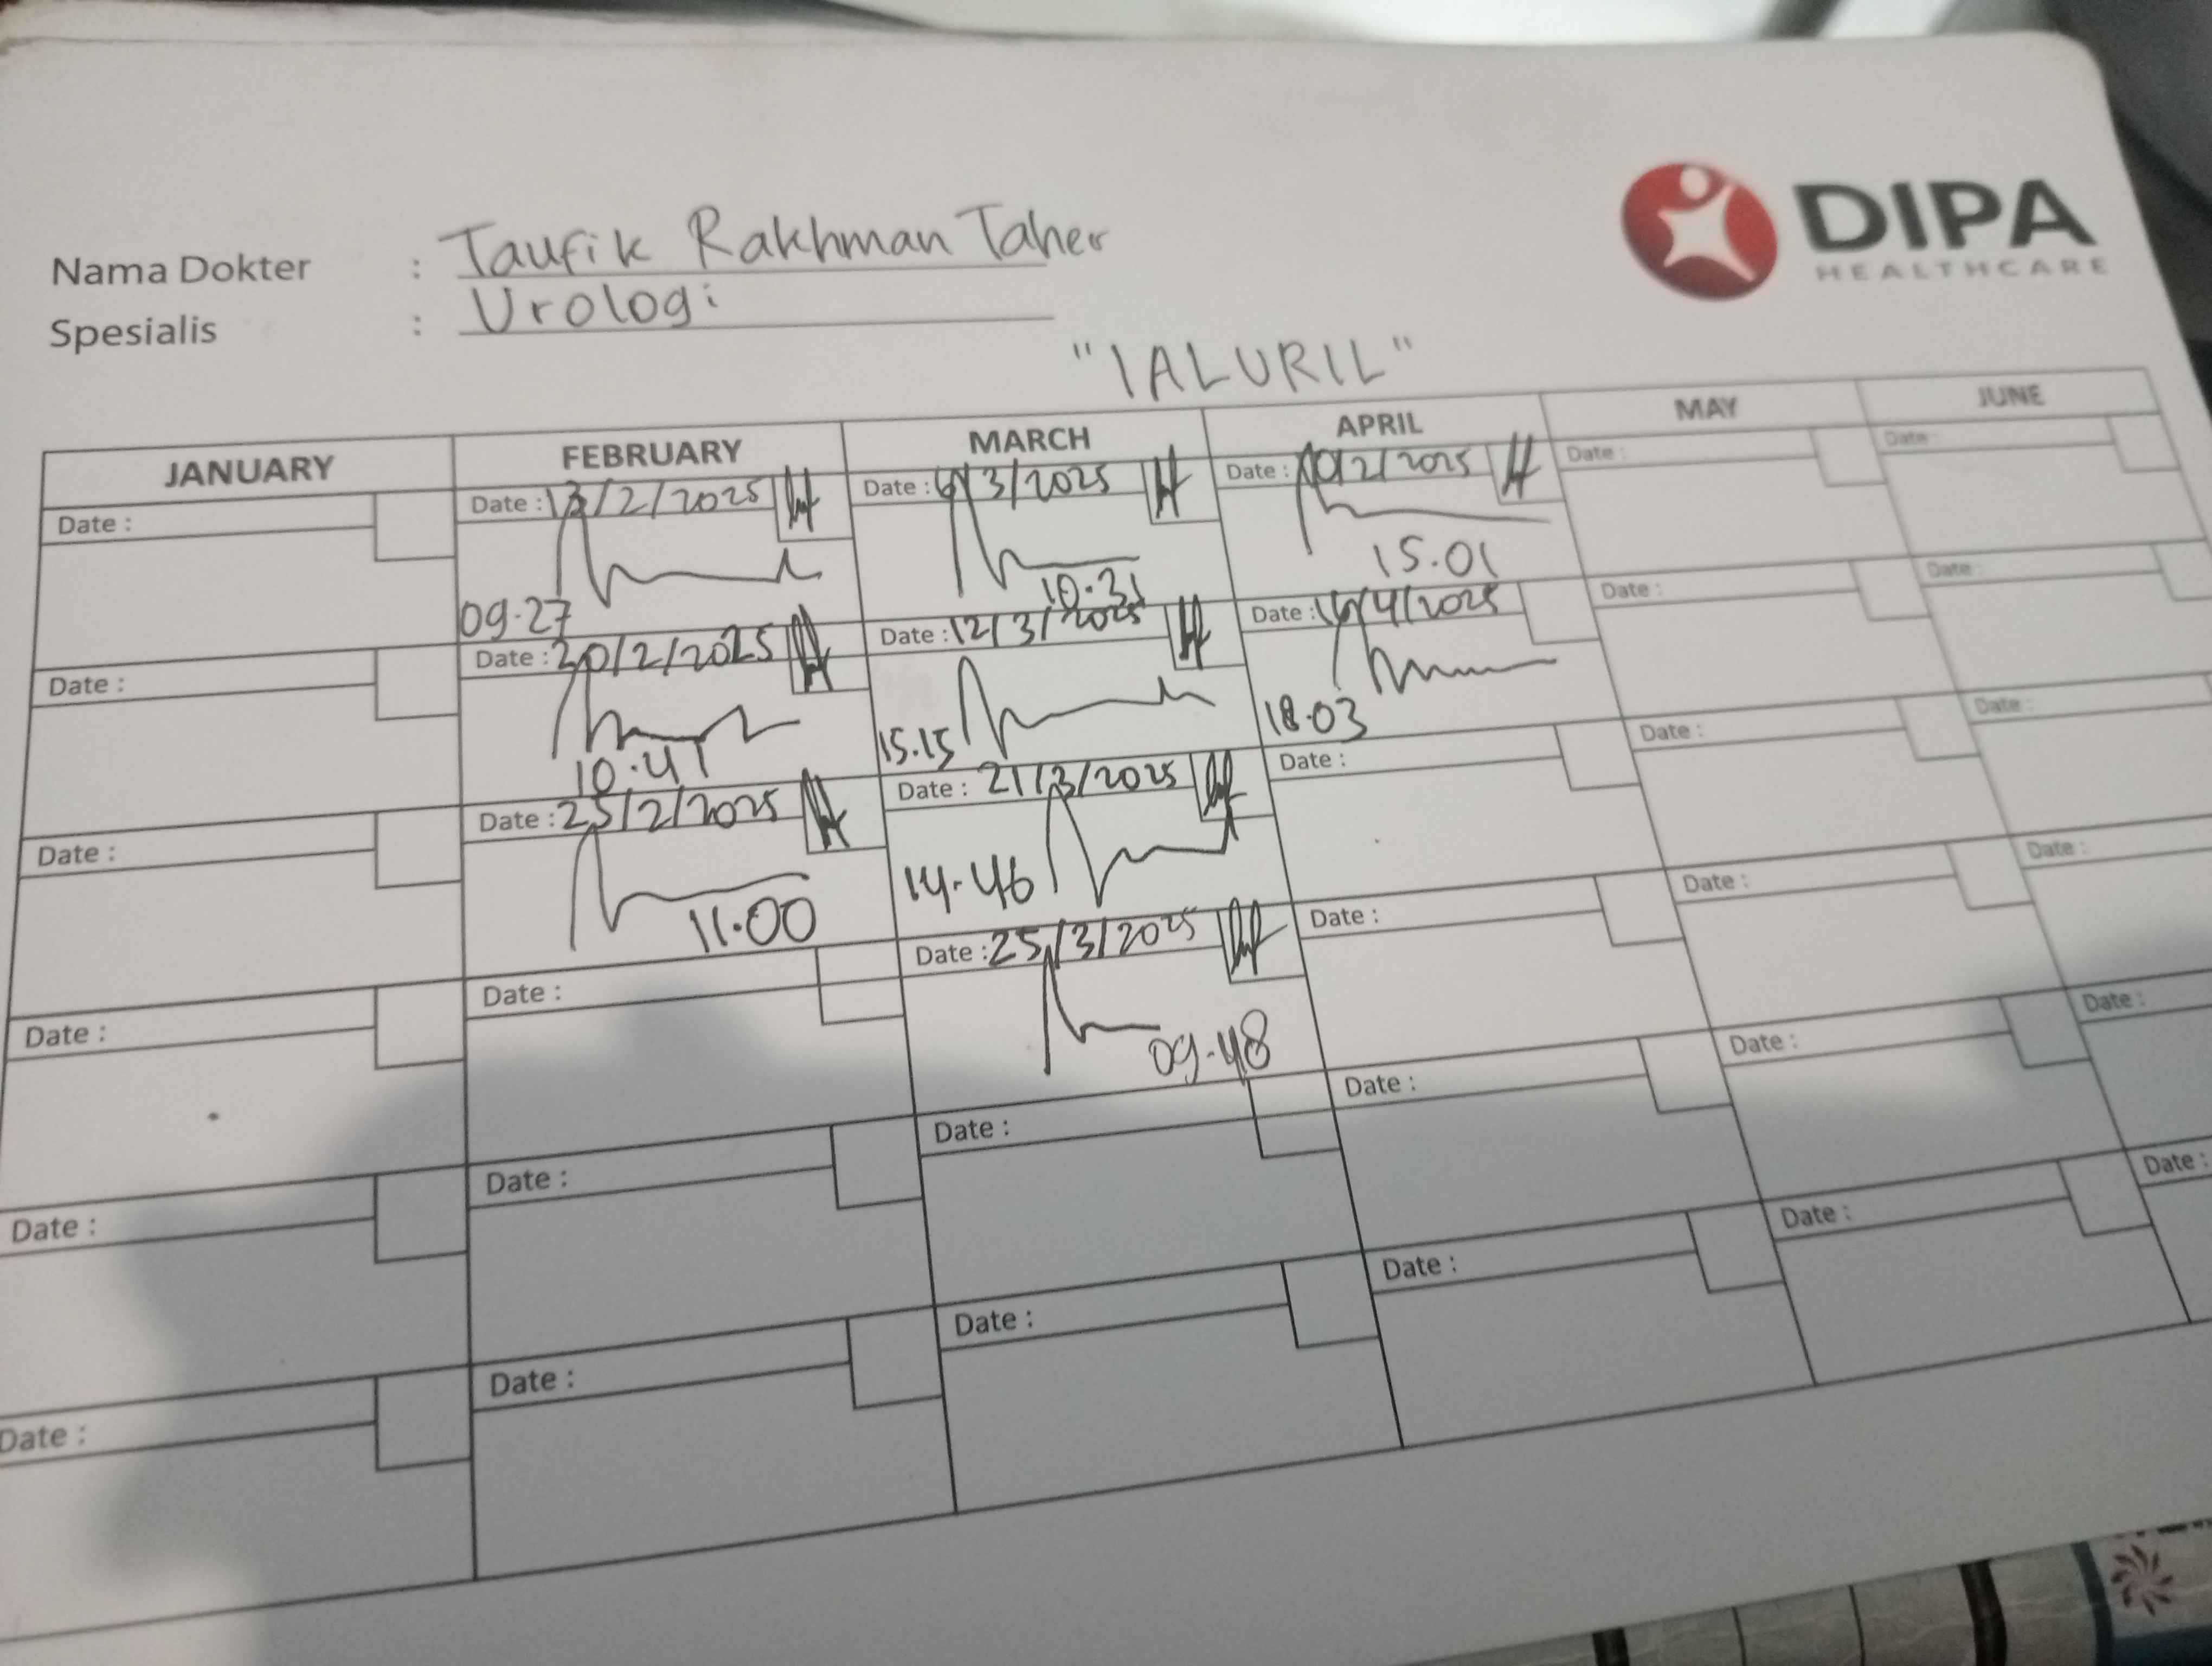 DIPA
HEALTHCARE
Nama Dokter : Taufik Rakhman Taher
Spesialis : Urologi
"IALURIL"
JANUARY FEBRUARY MARCH APRIL MAY JUNE
Date : Date : 13/2/2025 Date : 6/3/2025 Date : 10/2/2025 Date : Date :
09.27 10.31 15.01
Date : Date : 20/2/2025 Date : 12/3/2025 Date : 16/4/2025 Date : Date :
10.41 15.15 18.03
Date : Date : 25/2/2025 Date : 21/3/2025 Date : Date : Date :
11.00 14.46
Date : Date : Date : 25/3/2025 Date : Date : Date :
09.48
Date : Date : Date : Date : Date : Date :
Date : Date : Date : Date : Date : Date :